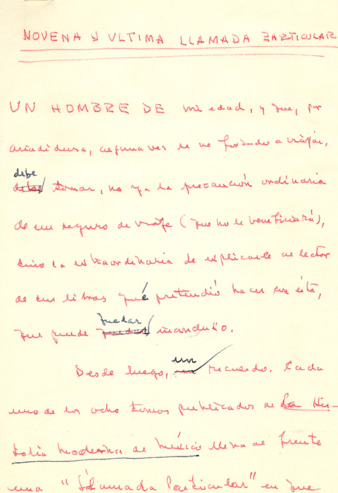 NOVENA Y ULTIMA LLAMADA PARTICULAR
UN HOMBRE DE mi edad, y que, por
añadidura, alguna vez se ve forzado a viajar,
debe
tomar, no ya la precaución ordinaria
de un seguro de viaje (que no le beneficiará),
sino la extraordinaria de explicarle al lector
de sus libros qué pretendió hacer con éste,
que puede quedar inconcluso.
Desde luego, un recuerdo. Cada
uno de los ocho tomos publicados de La His-
toria Moderna de México lleva al frente
una "Llamada Particular" en que